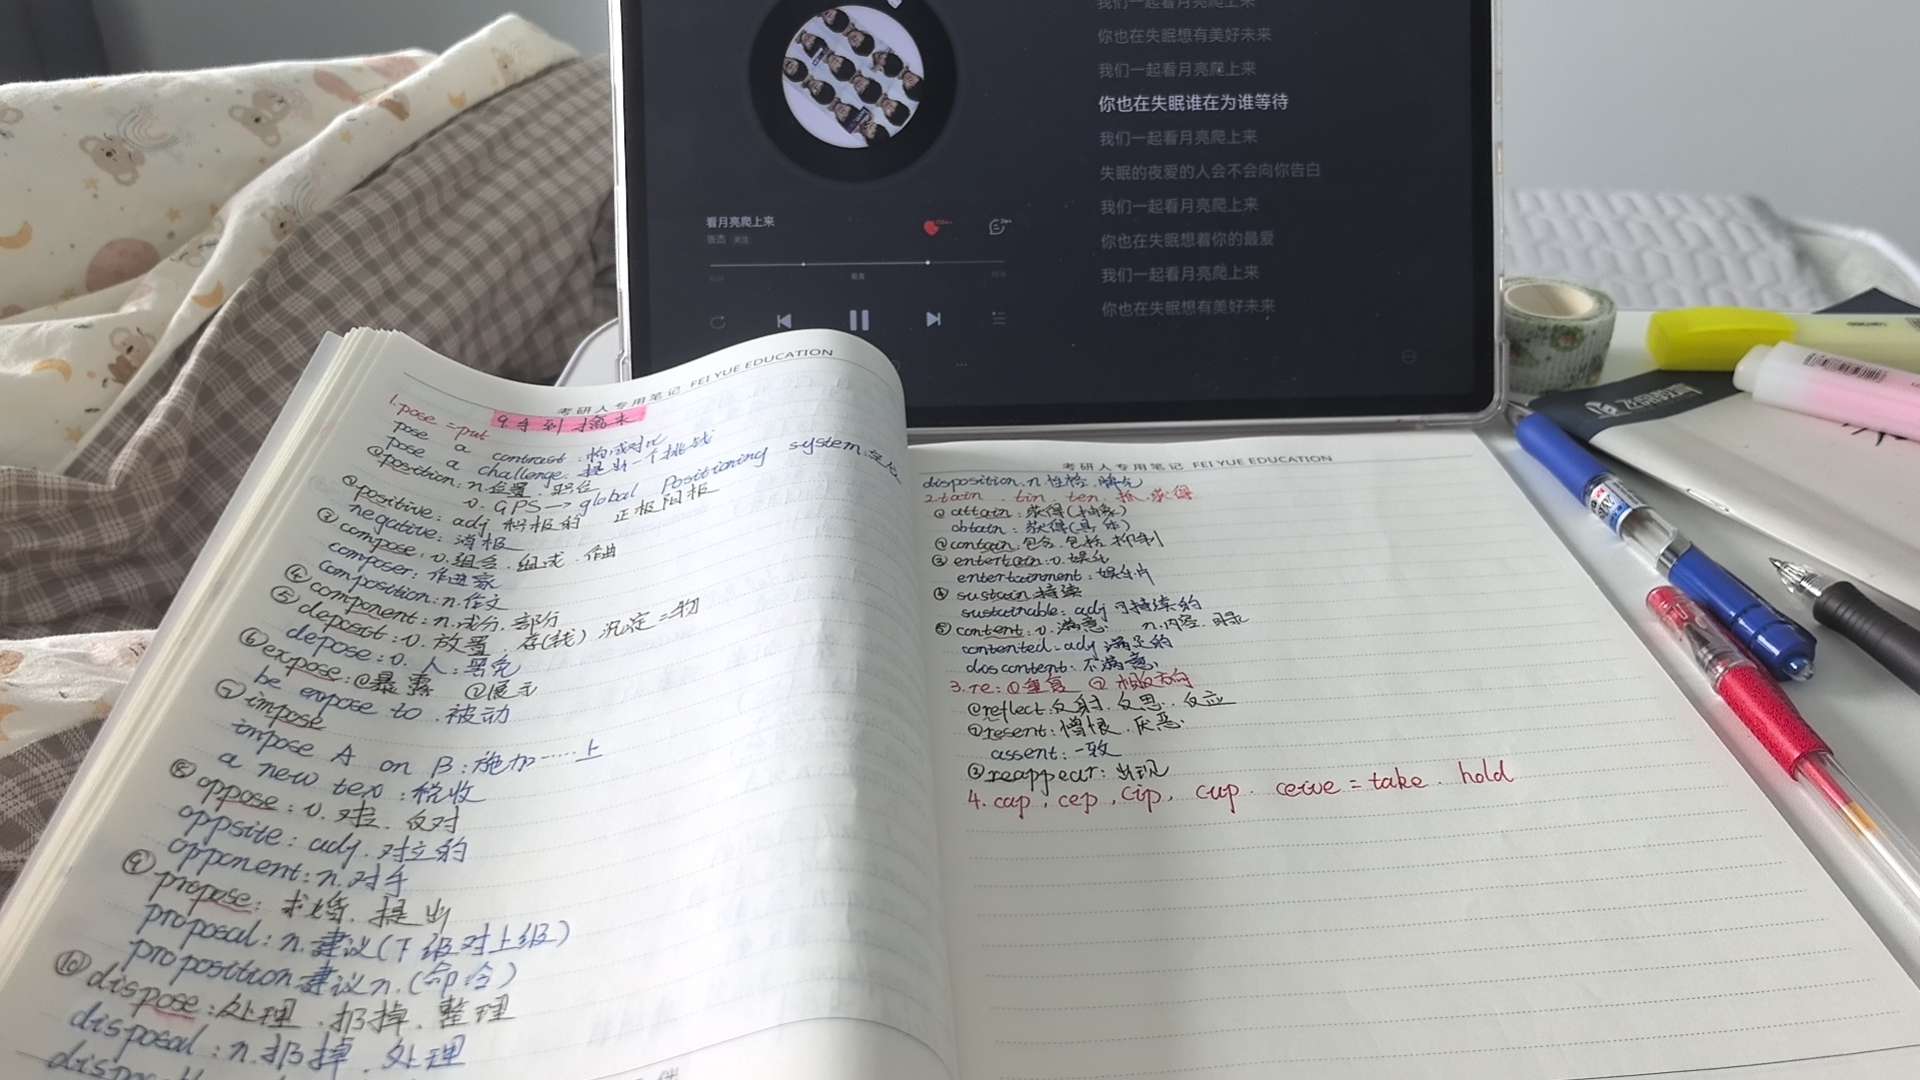 我们一起看月亮爬上来
你也在失眠想有美好未来
我们一起看月亮爬上来
你也在失眠谁在为谁等待
我们一起看月亮爬上来
失眠的夜爱的人会不会向你告白
我们一起看月亮爬上来
你也在失眠想着你的最爱
我们一起看月亮爬上来
你也在失眠想有美好未来
看月亮爬上来
关注
考研人专用笔记 FEI YUE EDUCATION
9.手到擒来
1.pose=put
pose a contrast:构成对比
pose a challenge:提出一个挑战
①position:n.位置.职位
v.GPS→global Positioning system
②positive:adj 积极的 正极阳极
negative:消极
③compose:v.组合.组成.作曲
composer:作曲家
composition:n.作文
④component:n.成分.部分
⑤deposit:v.放置.存(钱) 沉淀=物
depose:v.人:罢免
⑥expose:①暴露 ②展示
be expose to 被动
⑦impose
impose A on B:施加……上
a new tex:税收
⑧oppose:v.对立.反对
oppsite:adj.对立的
opponent:n.对手
⑨propose:求婚.提出
proposal:n.建议(下级对上级)
proposition建议n.(命令)
⑩dispose:处理.扔掉.整理
disposal:n.扔掉.处理
考研人专用笔记 FEI YUE EDUCATION
disposition.n 性格.
2.tain.tin.ten.抓.获得
①attain:获得(抽象)
obtain:获得(具体)
②contain:包含.包括.抑制
③entertain:v.娱乐
entertainment:娱乐片
④sustain 持续
sustainable:adj 可持续的
⑤content:v.满意 n.内容.目录
contented:adj 满足的
discontent:不满意
3.re:①重复 ②相反方向
①reflect:反射.反思.反应
②resent:憎恨.厌恶
assent:一致
③reappear:出现
4.cap,cep,cip,cup.ceive=take.hold